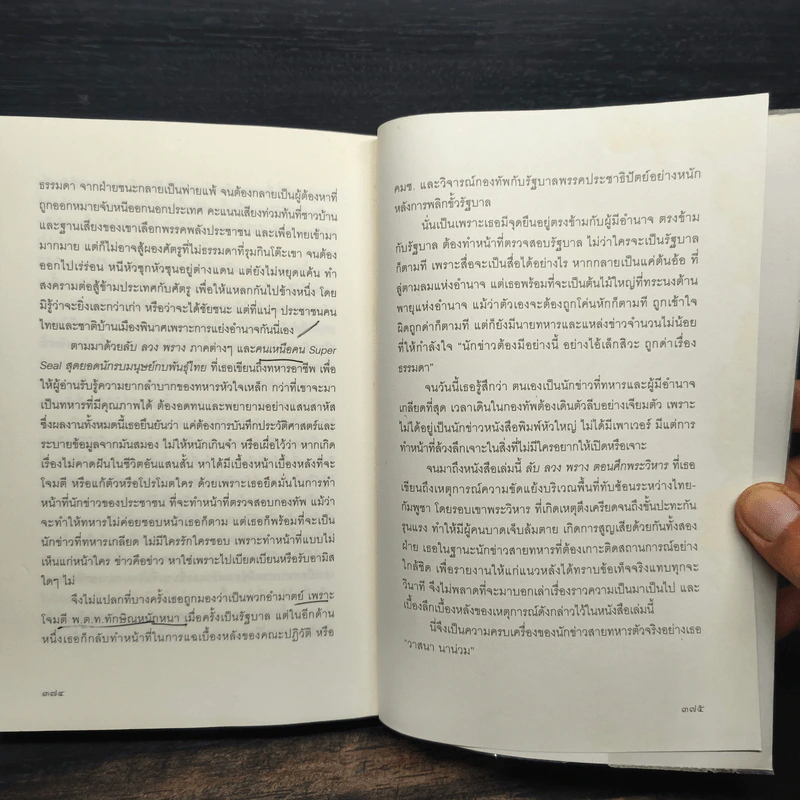 ธรรมดา จากฝ่ายชนะกลายเป็นพ่ายแพ้ จนต้องกลายเป็นผู้ต้องหาที่
ถูกออกหมายจับหนีออกนอกประเทศ คะแนนเสียงท่วมท้นที่ชาวบ้าน
และฐานเสียงของเขาเลือกพรรคพลังประชาชน และเพื่อไทยเข้ามา
มากมาย แต่ก็ไม่อาจสู้ผองศัตรูที่ไม่ธรรมดาที่รุมกินโต๊ะเขา จนต้อง
ออกไปเร่ร่อน หนีหัวซุกหัวซุนอยู่ต่างแดน แต่ยังไม่หยุดแค้น ทำ
สงครามต่อสู้ข้ามประเทศกับศัตรู เพื่อให้แหลกกันไปข้างหนึ่ง โดย
มิรู้ว่าจะยิ่งเละกว่าเก่า หรือว่าจะได้ชัยชนะ แต่ที่แน่ๆ ประชาชนคน
ไทยและชาติบ้านเมืองพินาศเพราะการแย่งอำนาจกันนี่เอง
ตามมาด้วยลับ ลวง พราง ภาคต่างๆ และคนเหนือคน Super
Seal สุดยอดนักรบมนุษย์กบพันธุ์ไทย ที่เธอเขียนถึงทหารอาชีพ เพื่อ
ให้ผู้อ่านรับรู้ความยากลำบากของทหารหัวใจเหล็ก กว่าที่เขาจะมา
เป็นทหารที่มีคุณภาพได้ ต้องอดทนและพยายามอย่างแสนสาหัส
ซึ่งผลงานทั้งหมดนี้เธอยืนยันว่า แค่ต้องการบันทึกประวัติศาสตร์และ
ระบายข้อมูลจากมันสมอง ไม่ให้หนักเกินจำ หรือเผื่อไว้ว่า หากเกิด
เรื่องไม่คาดฝันในชีวิตอันแสนสั้น หาได้มีเบื้องหน้าเบื้องหลังที่จะ
โจมตี หรือแก้ตัวหรือโปรโมตใคร ด้วยเพราะเธอยึดมั่นในการทำ
หน้าที่นักข่าวของประชาชน ที่จะทำหน้าที่ตรวจสอบกองทัพ แม้ว่า
จะทำให้ทหารไม่ค่อยชอบหน้าเธอก็ตาม แต่เธอก็พร้อมที่จะเป็น
นักข่าวที่ทหารเกลียด ไม่มีใครรักใครชอบ เพราะทำหน้าที่แบบไม่
เห็นแก่หน้าใคร ข่าวคือข่าว หาใช่เพราะไปเบียดเบียนหรือรับอามิส
ใดๆ ไม่
จึงไม่แปลกที่บางครั้งเธอถูกมองว่าเป็นพวกอำมาตย์ เพราะ
โจมตี พ.ต.ท.ทักษิณหนักหนา เมื่อครั้งเป็นรัฐบาล แต่ในอีกด้าน
หนึ่งเธอก็กลับทำหน้าที่ในการแฉเบื้องหลังของคณะปฏิวัติ หรือ
๓๗๔
คมช. และวิจารณ์กองทัพกับรัฐบาลพรรคประชาธิปัตย์อย่างหนัก
หลังการพลิกขั้วรัฐบาล
นั่นเป็นเพราะเธอมีจุดยืนอยู่ตรงข้ามกับผู้มีอำนาจ ตรงข้าม
กับรัฐบาล ต้องทำหน้าที่ตรวจสอบรัฐบาล ไม่ว่าใครจะเป็นรัฐบาล
ก็ตามที เพราะสื่อจะเป็นสื่อได้อย่างไร หากกลายเป็นแค่ต้นอ้อ ที่
สู่ตามลมแห่งอำนาจ แต่เธอพร้อมที่จะเป็นต้นไม้ใหญ่ที่ทระนงต้าน
พายุแห่งอำนาจ แม้ว่าตัวเองจะต้องถูกโค่นหักก็ตามที ถูกเข้าใจ
ผิดถูกด่าก็ตามที แต่ก็ยังมีนายทหารและแหล่งข่าวจำนวนไม่น้อย
ที่ให้กำลังใจ "นักข่าวต้องมีอย่างนี้ อย่างไอ้เล็กสิวะ ถูกด่าเรื่อง
ธรรมดา"
จนวันนี้เธอรู้สึกว่า ตนเองเป็นนักข่าวที่ทหารและผู้มีอำนาจ
เกลียดที่สุด เวลาเดินในกองทัพต้องเดินตัวลีบอย่างเจียมตัว เพราะ
ไม่ได้อยู่เป็นนักข่าวหนังสือพิมพ์หัวใหญ่ ไม่ได้มีเพาเวอร์ มีแต่การ
ทำหน้าที่ล้วงลึกเจาะในสิ่งที่ไม่มีใครอยากให้เปิดหรือเจาะ
จนมาถึงหนังสือเล่มนี้ ลับ ลวง พราง ตอนศึกพระวิหาร ที่เธอ
เขียนถึงเหตุการณ์ความขัดแย้งบริเวณพื้นที่ทับซ้อนระหว่างไทย-
กัมพูชา โดยรอบเขาพระวิหาร ที่เกิดเหตุตึงเครียดจนถึงขั้นปะทะกัน
รุนแรง ทำให้มีผู้คนบาดเจ็บล้มตาย เกิดการสูญเสียด้วยกันทั้งสอง
ฝ่าย เธอในฐานะนักข่าวสายทหารที่ต้องเกาะติดสถานการณ์อย่าง
ใกล้ชิด เพื่อรายงานให้แก่แนวหลังได้ทราบข้อเท็จจริงแทบทุกจะ
วินาที จึงไม่พลาดที่จะมาบอกเล่าเรื่องราวความเป็นมาเป็นไป และ
เบื้องลึกเบื้องหลังของเหตุการณ์ดังกล่าวไว้ในหนังสือเล่มนี้
นี่จึงเป็นความครบเครื่องของนักข่าวสายทหารตัวจริงอย่างเธอ
"วาสนา นาน่วม"
๓๗๕